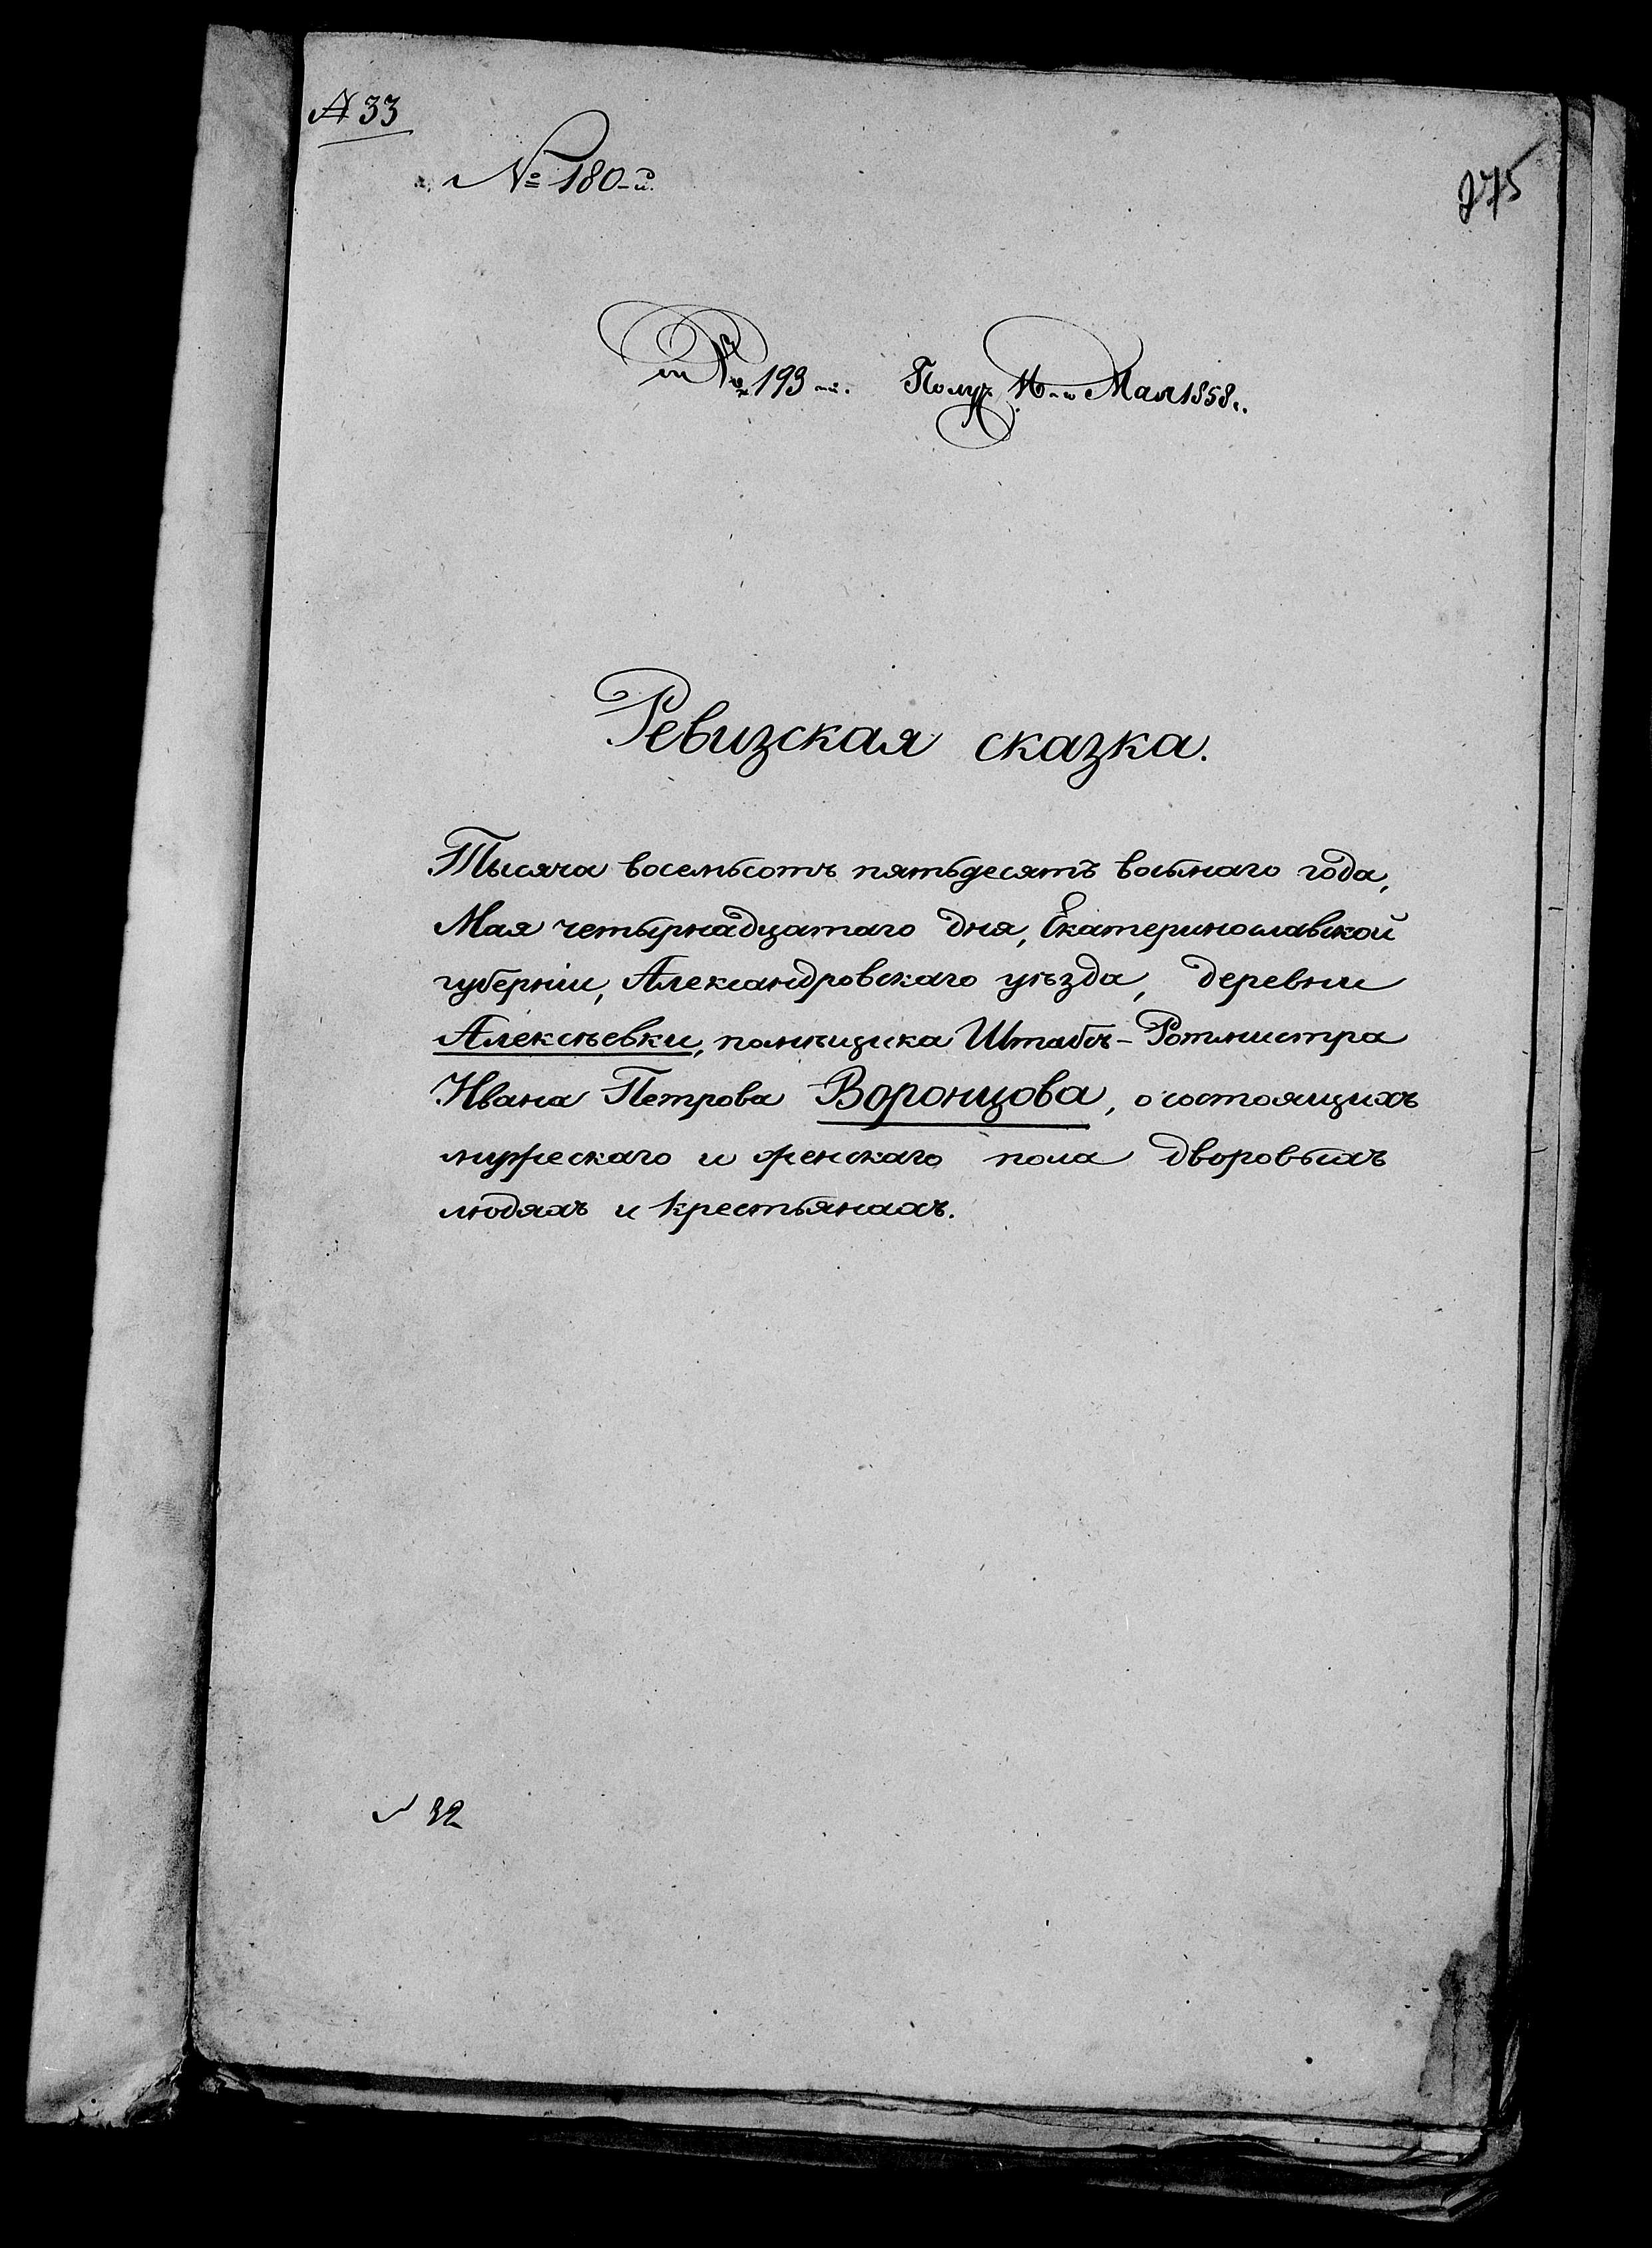 А 33
№ 180-й.
275
№ 193-й. Получ. 16-го Мая 1858 г.
Ревизская сказка.
Тысяча восемьсотъ пятьдесятъ восьмаго года,
Мая четырнадцатаго дня, Екатеринославской
губерніи, Александровскаго уѣзда, деревни
Алексѣевки, помѣщика Штабсъ-Ротмистра
Ивана Петрова Воронцова, о состоящихъ
мужескаго и женскаго пола дворовыхъ
людяхъ и крестьянахъ.
32